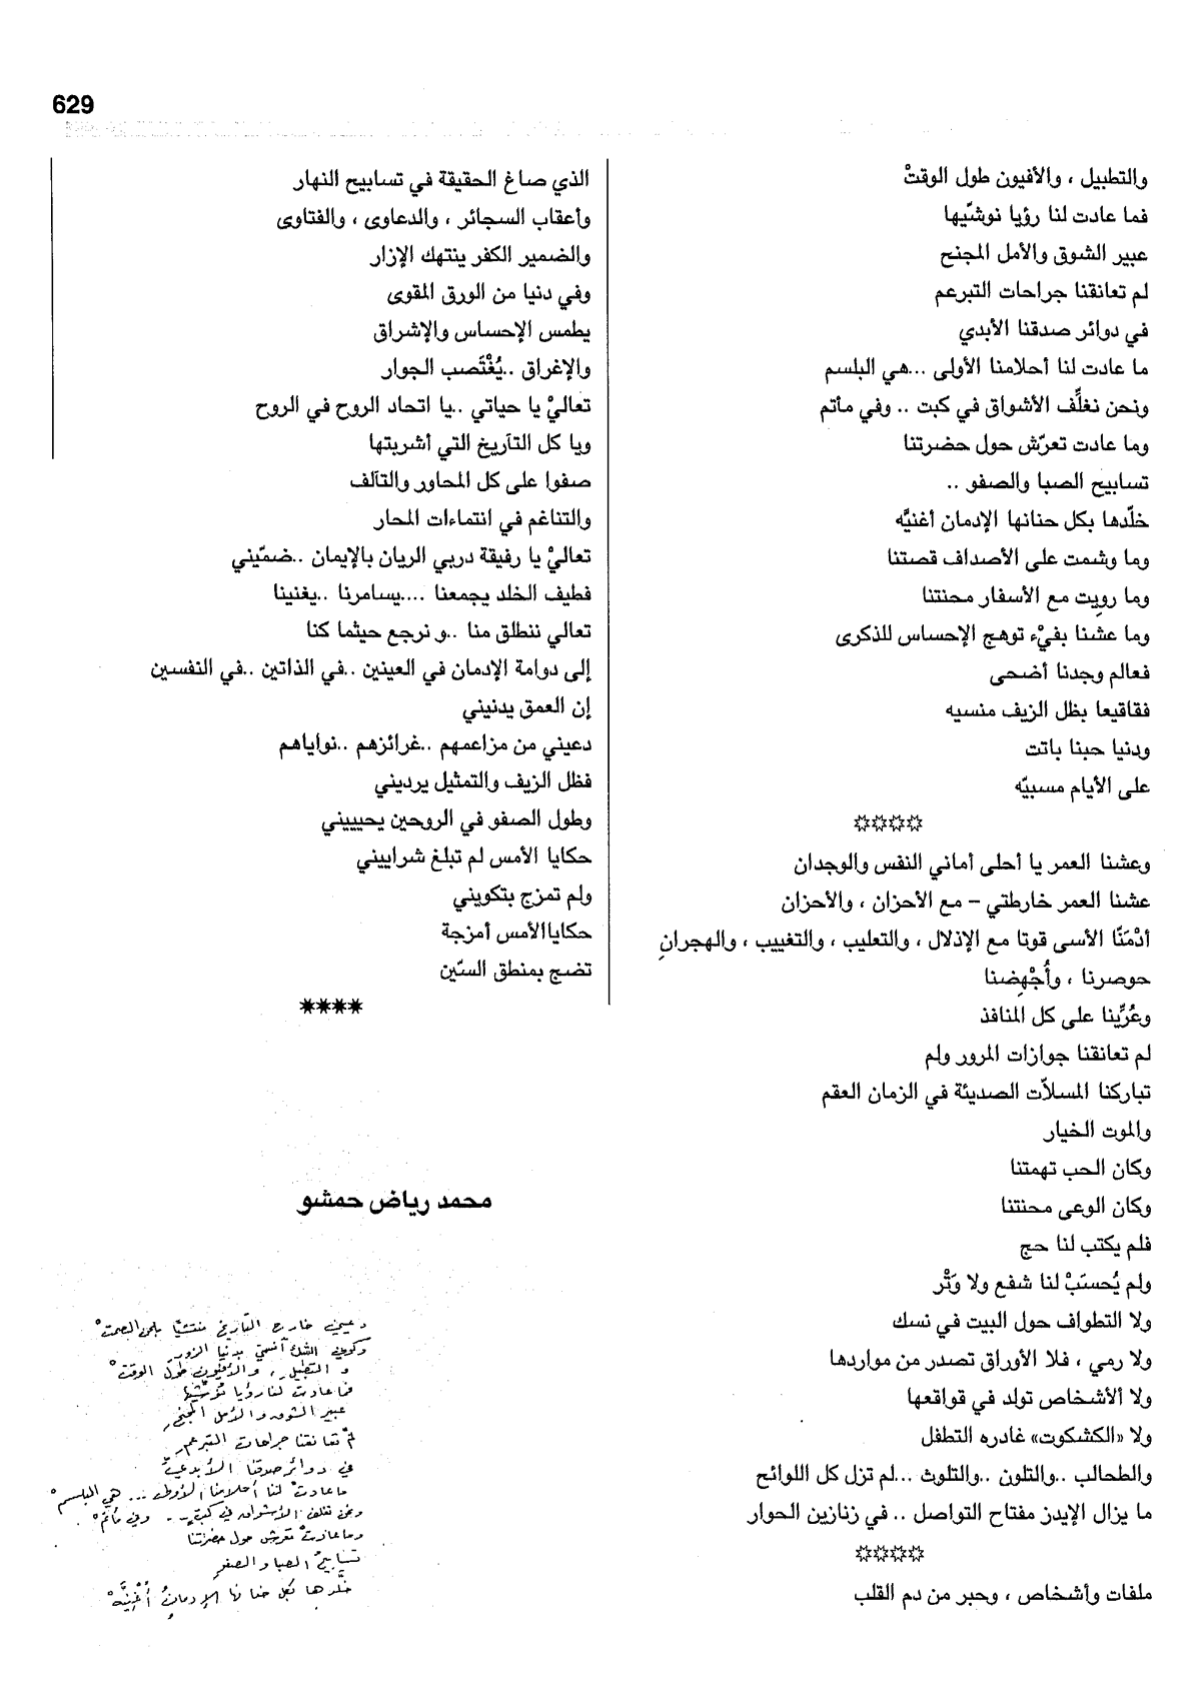 629
والتطبيل ، والأفيون طول الوقتْ
فما عادت لنا رؤيا نوشّيها
عبير الشوق والأمل المجنح
لم تعانقنا جراحات التبرعم
في دوائر صدقنا الأبدي
ما عادت لنا أحلامنا الأولى ...هي البلسم
ونحن نغلِّف الأشواق في كبت .. وفي مأتم
وما عادت تعرّش حول حضرتنا
تسابيح الصبا والصفو ..
خلّدها بكل حنانها الإدمان أغنيَّه
وما وشمت على الأصداف قصتنا
وما رويِت مع الأسفار محنتنا
وما عشنا بفيْء توهج الإحساس للذكرى
فعالم وجدنا أضحى
فقاقيعا بظل الزيف منسيه
ودنيا حبنا باتت
على الأيام مسبيّه
✡✡✡✡
وعشنا العمر يا أحلى أماني النفس والوجدان
عشنا العمر خارطتي – مع الأحزان ، والأحزان
أدْمَنّا الأسى قوتا مع الإذلال ، والتعليب ، والتغييب ، والهجرانِ
حوصرنا ، وأُجْهِضنا
وعُرِّينا على كل المنافذ
لم تعانقنا جوازات المرور ولم
تباركنا المسلاّت الصديئة في الزمان العقم
والموت الخيار
وكان الحب تهمتنا
وكان الوعى محنتنا
فلم يكتب لنا حج
ولم يُحسَبْ لنا شفع ولا وَتْر
ولا التطواف حول البيت في نسك
ولا رمي ، فلا الأوراق تصدر من مواردها
ولا ألأشخاص تولد في قواقعها
ولا «الكشكوت» غادره التطفل
والطحالب ..والتلون ..والتلوث ...لم تزل كل اللوائح
ما يزال الإيدز مفتاح التواصل .. في زنازين الحوار
✡✡✡✡
ملفات وأشخاص ، وحبر من دم القلب
الذي صاغ الحقيقة في تسابيح النهار
وأعقاب السجائر ، والدعاوى ، والفتاوى
والضمير الكفر ينتهك الإزار
وفي دنيا من الورق المقوى
يطمس الإحساس والإشراق
والإغراق ..يُغْتَصب الجوار
تعاليْ يا حياتي ..يا اتحاد الروح في الروح
ويا كل التآريخ التي أشربتها
صفوا على كل المحاور والتآلف
والتناغم في انتماءات المحار
تعاليْ يا رفيقة دربي الريان بالإيمان ..ضمّيني
فطيف الخلد يجمعنا ....يسامرنا ..يغنينا
تعالي ننطلق منا ..و نرجع حيثما كنا
إلى دوامة الإدمان في العينين ..في الذاتين ..في النفسين
إن العمق يدنيني
دعيني من مزاعمهم ..غرائزهم ..نواياهم
فظل الزيف والتمثيل يرديني
وطول الصفو في الروحين يحيييني
حكايا الأمس لم تبلغ شراييني
ولم تمزج بتكويني
حكاياالأمس أمزجة
تضج بمنطق السّين
✷✷✷✷
محمد رياض حمشو
دعيني خارج التأريخ منتشيًا بلحن الصمتْ
بدنيا الزور
و التطبيل ، والأفيون طول الوقتْ
فما عادت لنا رؤيا نُوشّيها
عبير الشوق والأمل المجنح
لمْ تعانقنا جراحات التبرعم
في دوائر صدقنا الأبدي
ما عادتْ لنا أحلامنا الأولى ... هي البلسمْ
ونحن نغلف الأشواق في كبتٍ .. وفي مأتمْ
وما عادتْ تعرش حول حضرتنا
تسابيحُ الصبا والصفو
خلَّدها بكل حنانها الإدمانُ أُغْنِيَّهْ